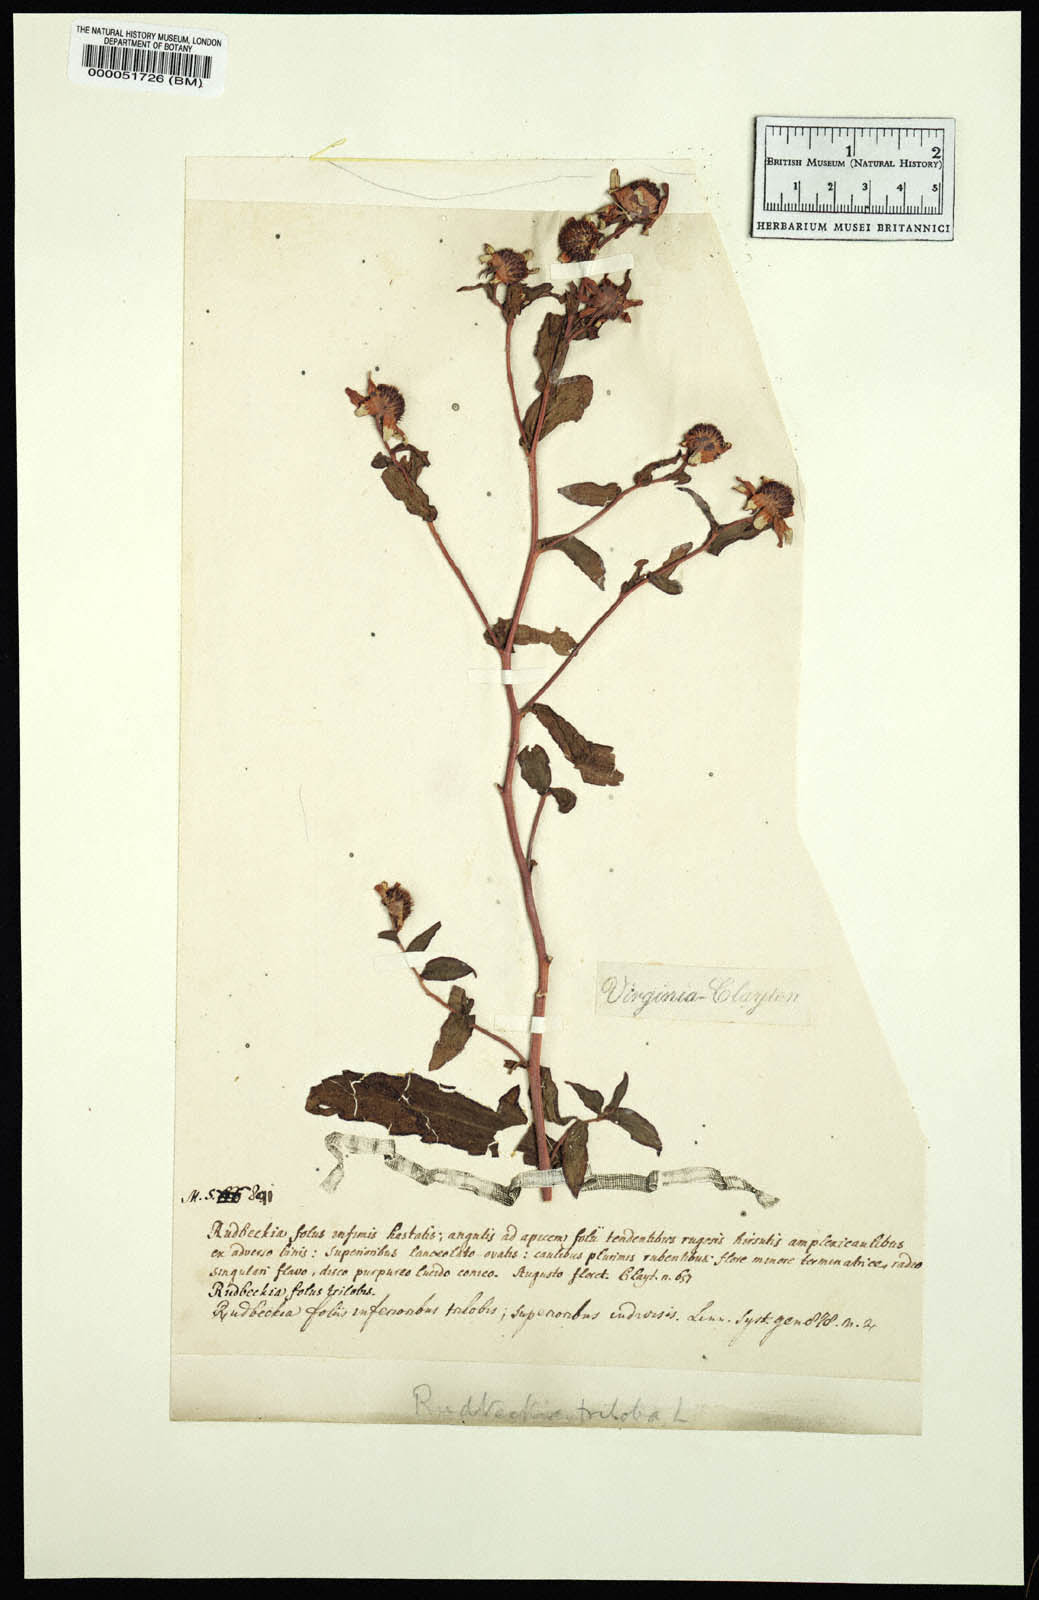 THE NATURAL HISTORY MUSEUM, LONDON
DEPARTMENT OF BOTANY
000051726 (BM)
1 2
BRITISH MUSEUM (NATURAL HISTORY)
1 2 3 4 5
HERBARIUM MUSEI BRITANNICI
Virginia-Clayton
M. S. 891
Rudbeckia foliis infimis hastatis; angulis ad apicem folii tendentibus rugosis hirsutis amplexicaulibus
ex adverso binis: superioribus lanceolato ovatis: caulibus plurimis rubentibus: flore minore terminatrice, radio
singulari flavo, disco purpureo lucido conico. Augusto floret. Clayt. n. 657
Rudbeckia foliis trilobis.
Rudbeckia foliis inferioribus trilobis; superioribus indivisis. Linn. Syst. gen 878. n. 2
Rudbeckia triloba L